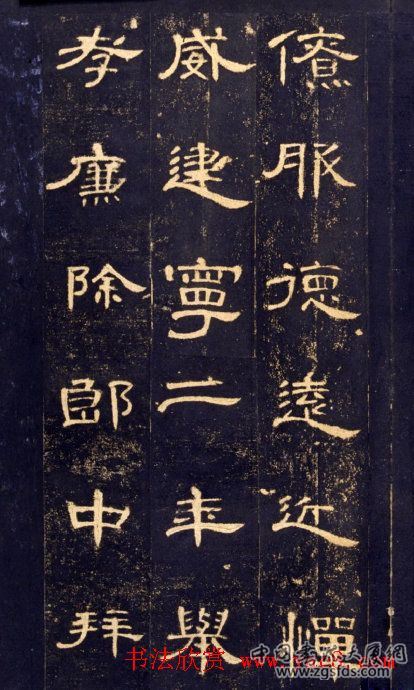 僚服德遠近憚
威建寧二年舉
孝廉除郎中拜
书法欣赏
中国书法大展网